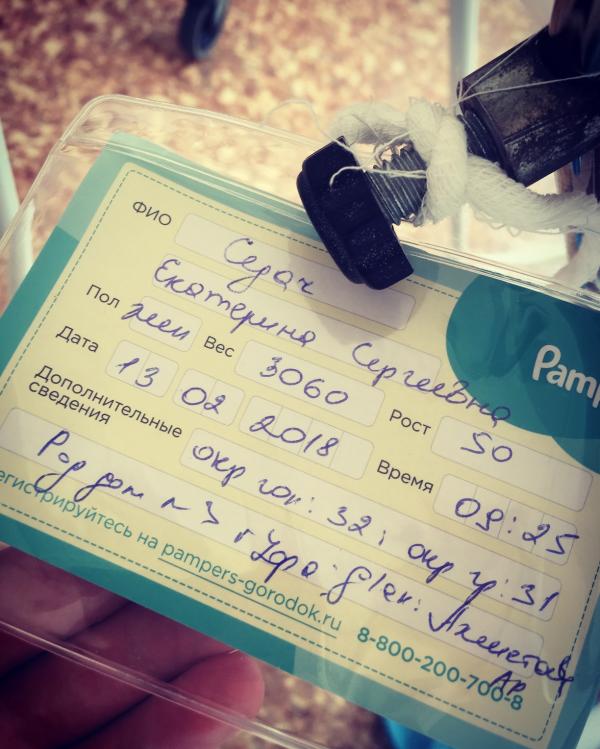 ФИО Седач
Екатерина Сергеевна
Pamp
Пол жен Вес 3060 Рост 50
Дата 13 02 2018 Время 09:25
Дополнительные
сведения окр гол: 32; окр гр: 31
Род дом n 3 г Уфа.
регистрируйтесь на pampers-gorodok.ru
8-800-200-700-8